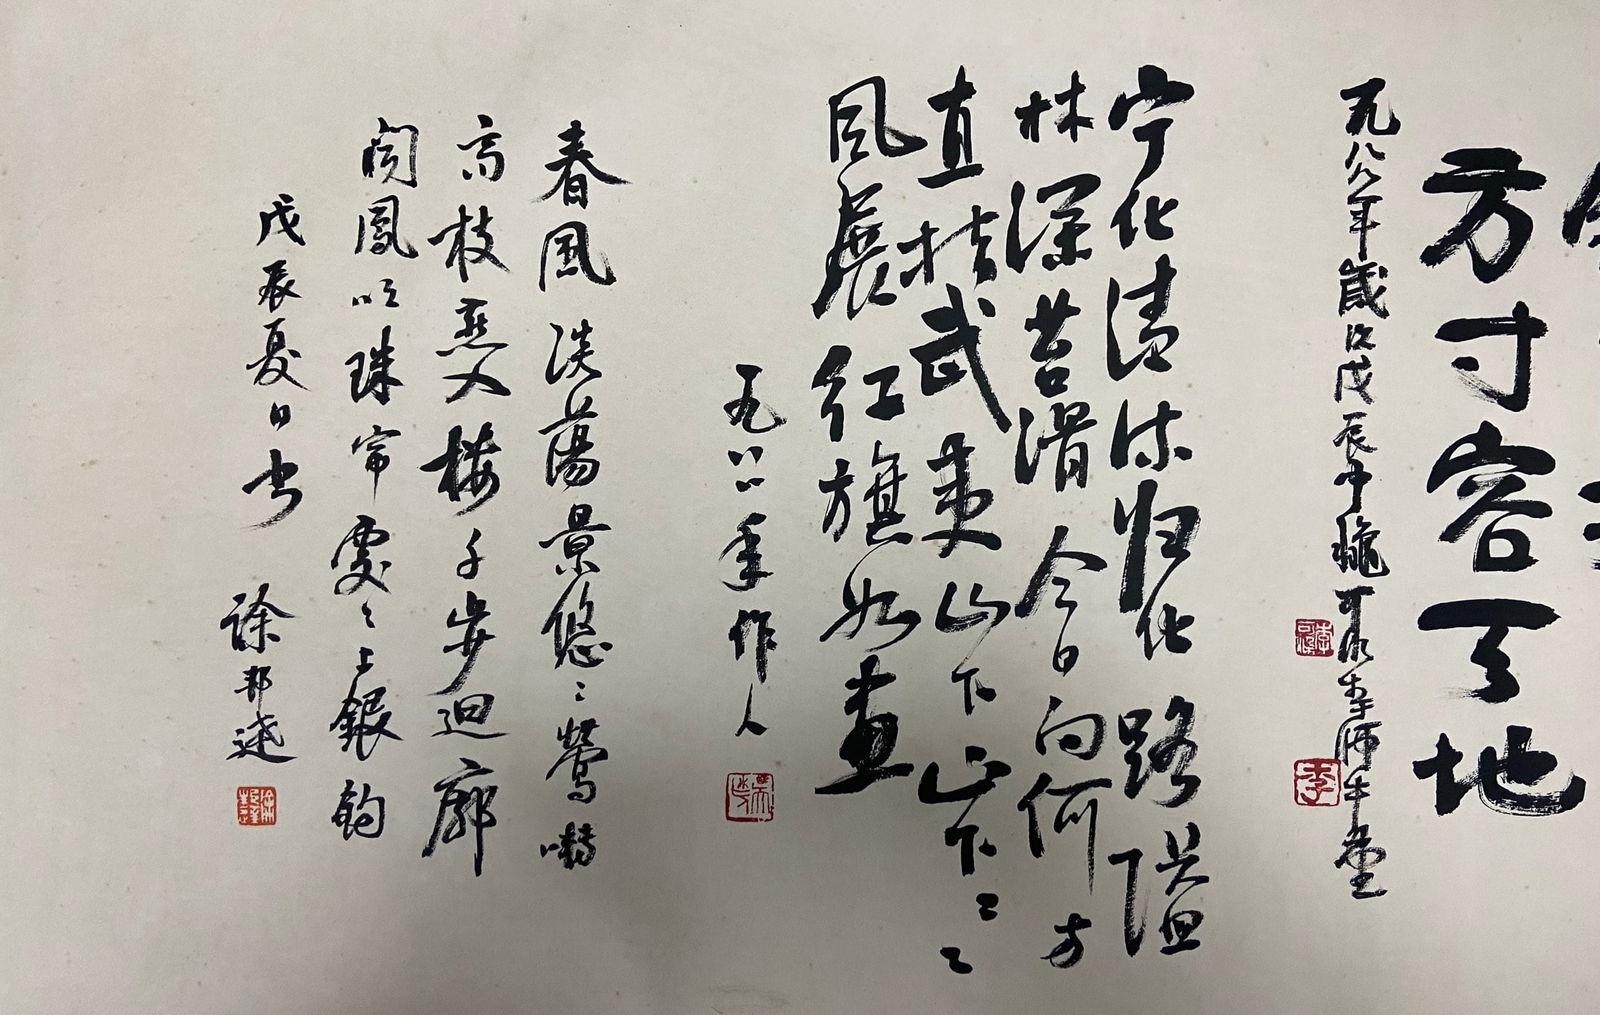 方寸容天地
一九八八年歲次戊辰中龝可染師牛堂
宁化清流归化路隘
林深苔滑今日向何方
直指武夷山下山下々々
风展红旗如画
一九八八年作人
春風淡蕩景悠々鶯囀
高枝燕入樓千步迴廊
聞鳳吹珠帘處々上銀鉤
戊辰夏日书 徐邦達